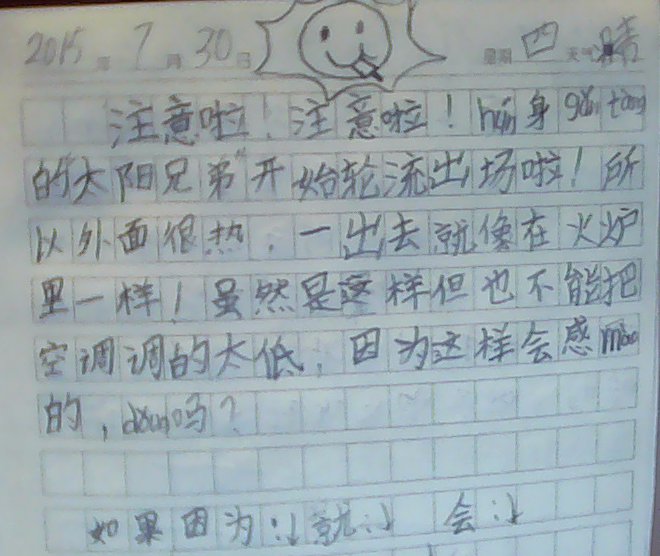 2015年7月30日 星期四 天气晴
注意啦！注意啦！hún身gǔn tàng
的"太阳兄弟"开始轮流出场啦！所
以外面很热，一出去就像在火炉
里一样！虽然是这样但也不能把
空调调的太低，因为这样会感mào
的，dǒng吗？
如果因为：↓就：↓ 会：↓